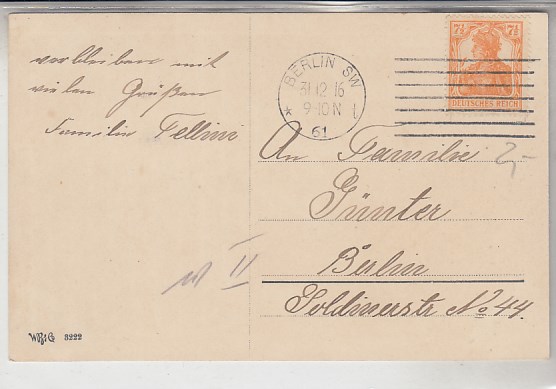 verbleiben mit
vielen Grüßen
Familie Fellini
BERLIN SW
31.12.16
9-10 N
* 61
7½ 7½
DEUTSCHES REICH
An Familie
Günter
Berlin
Soldinerstr No 44.
2,-
II
3222